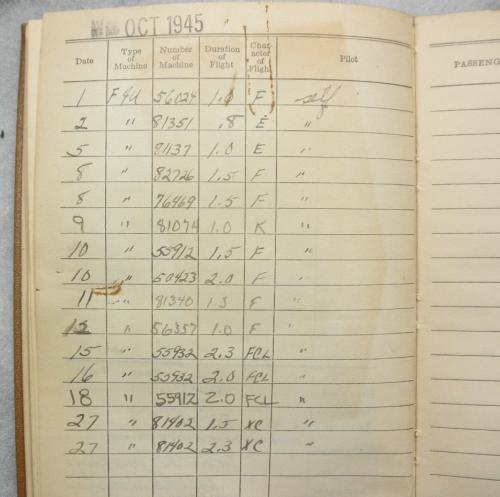 OCT 1945
Date Type of Machine Number of Machine Duration of Flight Character of Flight Pilot PASSENG
1 F4U 56024 1.0 F self
2 " 81351 .8 E "
5 " 81137 1.0 E "
8 " 82726 1.5 F "
8 " 76469 1.5 F "
9 " 81074 1.0 K "
10 " 55912 1.5 F "
10 " 50423 2.0 F "
11 " 81340 1.5 F "
12 " 56357 1.0 F "
15 " 55932 2.3 FCL "
16 " 55932 2.0 FCL "
18 " 55912 2.0 FCL "
27 " 81402 1.5 XC "
27 " 81402 2.3 XC "